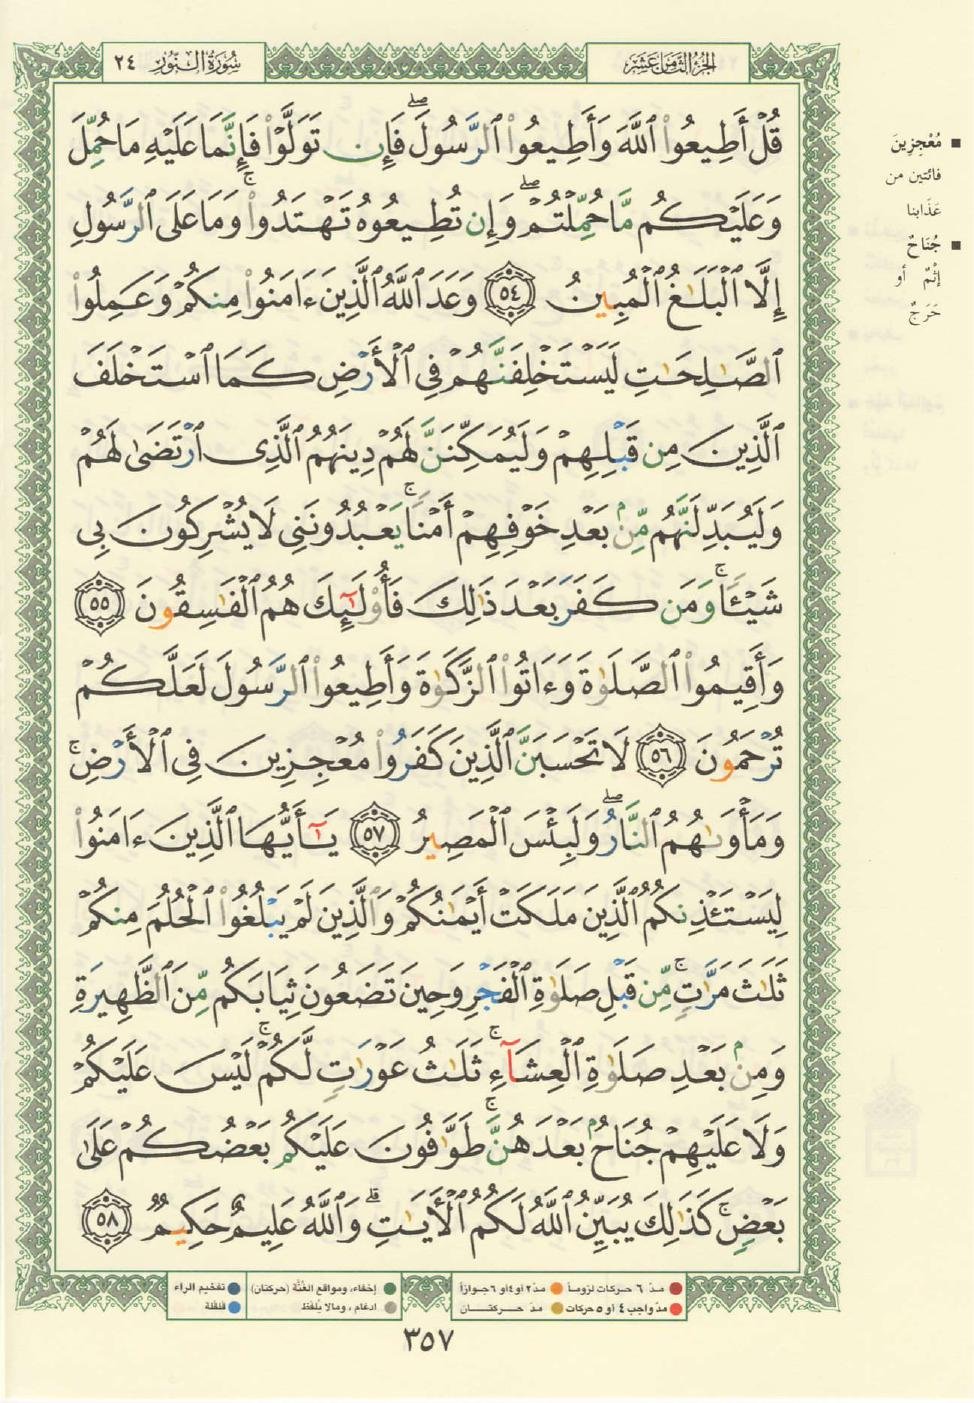 الجزء الثامن عشر
سورة النور ٢٤
قُلْ أَطِيعُوا۟ ٱللَّهَ وَأَطِيعُوا۟ ٱلرَّسُولَ ۖ فَإِن تَوَلَّوْا۟ فَإِنَّمَا عَلَيْهِ مَا حُمِّلَ
وَعَلَيْكُم مَّا حُمِّلْتُمْ ۖ وَإِن تُطِيعُوهُ تَهْتَدُوا۟ ۚ وَمَا عَلَى ٱلرَّسُولِ
إِلَّا ٱلْبَلَـٰغُ ٱلْمُبِينُ ٥٤ وَعَدَ ٱللَّهُ ٱلَّذِينَ ءَامَنُوا۟ مِنكُمْ وَعَمِلُوا۟
ٱلصَّـٰلِحَـٰتِ لَيَسْتَخْلِفَنَّهُمْ فِى ٱلْأَرْضِ كَمَا ٱسْتَخْلَفَ
ٱلَّذِينَ مِن قَبْلِهِمْ وَلَيُمَكِّنَنَّ لَهُمْ دِينَهُمُ ٱلَّذِى ٱرْتَضَىٰ لَهُمْ
وَلَيُبَدِّلَنَّهُم مِّنۢ بَعْدِ خَوْفِهِمْ أَمْنًا ۚ يَعْبُدُونَنِى لَا يُشْرِكُونَ بِى
شَيْـًٔا ۚ وَمَن كَفَرَ بَعْدَ ذَٰلِكَ فَأُو۟لَـٰٓئِكَ هُمُ ٱلْفَـٰسِقُونَ ٥٥
وَأَقِيمُوا۟ ٱلصَّلَوٰةَ وَءَاتُوا۟ ٱلزَّكَوٰةَ وَأَطِيعُوا۟ ٱلرَّسُولَ لَعَلَّكُمْ
تُرْحَمُونَ ٥٦ لَا تَحْسَبَنَّ ٱلَّذِينَ كَفَرُوا۟ مُعْجِزِينَ فِى ٱلْأَرْضِ ۚ
وَمَأْوَىٰهُمُ ٱلنَّارُ ۖ وَلَبِئْسَ ٱلْمَصِيرُ ٥٧ يَـٰٓأَيُّهَا ٱلَّذِينَ ءَامَنُوا۟
لِيَسْتَـْٔذِنكُمُ ٱلَّذِينَ مَلَكَتْ أَيْمَـٰنُكُمْ وَٱلَّذِينَ لَمْ يَبْلُغُوا۟ ٱلْحُلُمَ مِنكُمْ
ثَلَـٰثَ مَرَّٰتٍ ۚ مِّن قَبْلِ صَلَوٰةِ ٱلْفَجْرِ وَحِينَ تَضَعُونَ ثِيَابَكُم مِّنَ ٱلظَّهِيرَةِ
وَمِنۢ بَعْدِ صَلَوٰةِ ٱلْعِشَآءِ ۚ ثَلَـٰثُ عَوْرَٰتٍ لَّكُمْ ۚ لَيْسَ عَلَيْكُمْ
وَلَا عَلَيْهِمْ جُنَاحٌۢ بَعْدَهُنَّ ۚ طَوَّٰفُونَ عَلَيْكُم بَعْضُكُمْ عَلَىٰ
بَعْضٍ ۚ كَذَٰلِكَ يُبَيِّنُ ٱللَّهُ لَكُمُ ٱلْـَٔايَـٰتِ ۗ وَٱللَّهُ عَلِيمٌ حَكِيمٌ ٥٨
■ مُعْجِزِينَ
فائتين من
عَذَابنا
■ جُنَاحٌ
إِثْمٌ أو
حَرَجٌ
مدّ ٦ حركات لزوماً مدّ ٢ أو ٤ أو ٦ جوازاً إخفاء، ومواقع الغُنَّة (حركتان) تفخيم الراء
مدّ واجب ٤ أو ٥ حركات مدّ حركتان ادغام، ومالا يُلفَظ قلقلة
٣٥٧